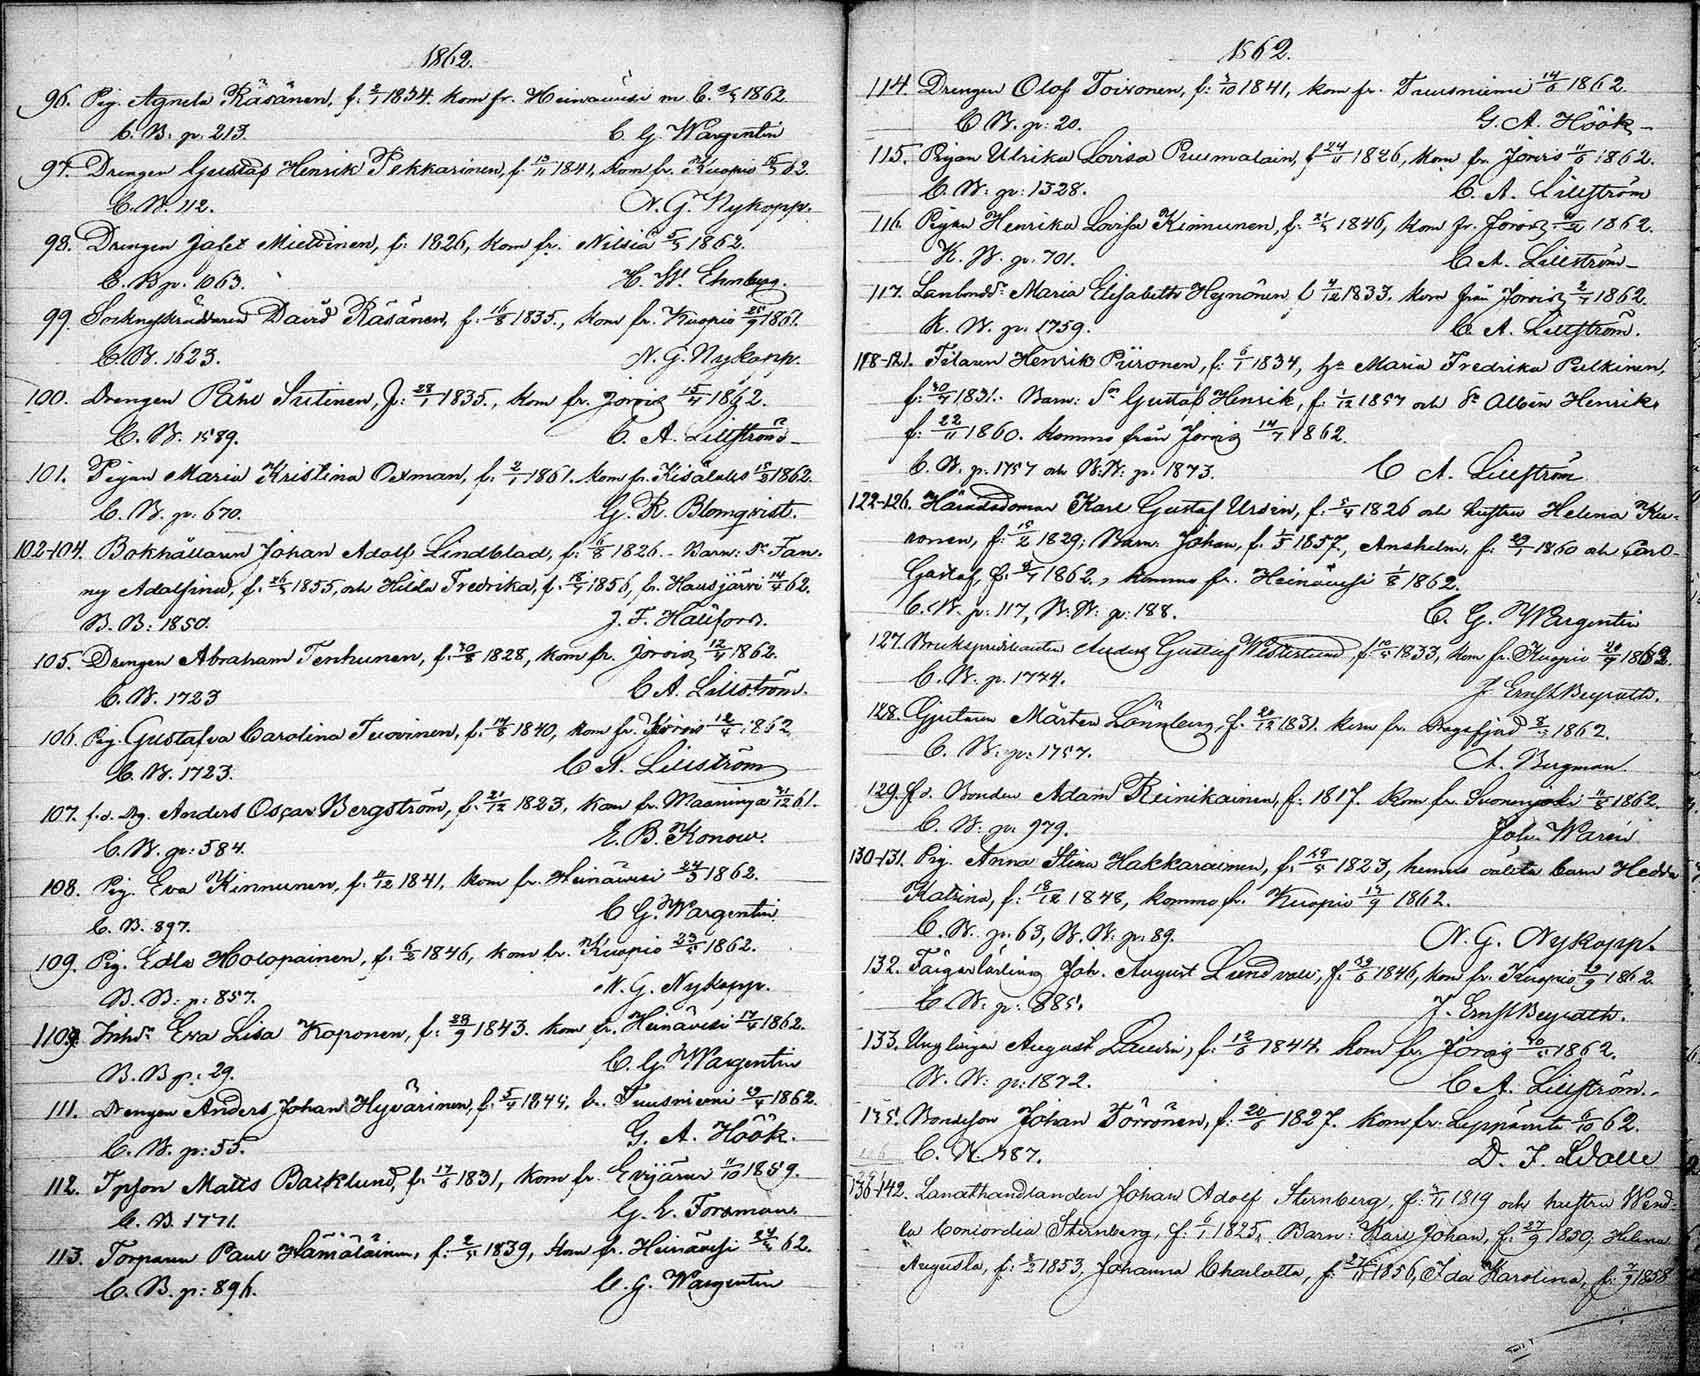 1862.
96. Pig. Agneta Räsänen, f. 2/1 1834. kom fr. Heinävesi m. C. 1862.
C. B. p. 213. C. G. Wargentin
97. Drengen Gustaf Henrik Pekkarinen, f. 13/11 1841, kom fr. Kuopio 62.
C. B. 112. N. G. Nykopp.
98. Drengen Jafet Miettinen, f. 1826, kom fr. Nilsiä 5/5 1862.
C. B p. 1063. H. W. Ehnberg.
99. Sockneskräddaren David Räsänen, f. 16/8 1835., kom fr. Kuopio 25/9 1861.
C. B. 1623. N. G. Nykopp.
100. Drengen Påhl Sutinen, f. 28/1 1835., kom fr. Jorois 15/4 1862.
C. B. 1589. C. A. Lillström
101. Pigan Maria Kristina Oxman, f. 2/1 1861. kom fr. 1862.
C. B. p. 670. G. R. Blomqvist.
102-104. Bokhållaren Johan Adolf Lindblad, f. 6/8 1826. Barn: Dr Fan-
ny Adolfina, f. 26/5 1855, och Hilda Fredrika, f. 18/7 1856, fr. Hausjärvi 14/4 62.
B. B: 1850. J. F. Hallfors.
105. Drengen Abraham Tenhunen, f. 30/8 1828, kom fr. Jorois 12/4 1862.
C. B. 1723 C A. Lillström.
106. Pig. Gustafva Carolina Tuovinen, f. 14/8 1840, kom fr. Jorois 12/4 1862
C. B. 1723. C A. Lillström
107. f.d. Dg. Anders Oscar Bergström, f. 21/12 1823, kom fr. Maaninga 31/12 61.
C. B. p: 584. E. B. Konow.
108. Pig. Eva Kinnunen, f. 6/12 1841, kom fr. Heinävesi 24/3 1862.
C. B. 897. C G. Wargentin
109. Pig. Edla Holopainen, f. 6/2 1846, kom fr. Kuopio 23/5 1862.
B. B: p: 857. N. G. Nykopp.
110. Inhs Eva Lisa Koponen, f. 28/9 1843. kom fr. Heinävesi 17/4 1862.
B. B p: 29. C. G. Wargentin
111. Drengen Anders Johan Hyvärinen, f. 5/4 1844. fr. Tuusniemi 1862.
C. B. p: 55. G. A. Höök.
112. Ipson Matts Backlund, f. 17/6 1831, kom fr. Evijärvi 11/10 1859.
C. B. 1771. G. E. Forsman.
113. Torparen Paul Hämäläinen, f. 2/5 1839, kom fr. Heinävesi 24/5 62.
C. B. p: 896. C. G. Wargentin
1862.
114. Drengen Olof Toivonen, f: 3/10 1841, kom fr. Tuusniemi 14/6 1862.
C B. p: 20. G. A. Höök
115. Pigan Ulrika Lovisa Puumalain, f 24/11 1826, kom fr. Jorois 11/6 1862.
C. B: p: 1328. C. A. Lillström
116. Pigan Henrika Lovisa Kinnunen, f: 21/5 1846, kom fr. Jorois 1862.
K. B. p. 701. C A. Lillström
117. Lanbondd. Maria Elisabeth Heynonen, f 4/12 1833. kom från Jorois 2/7 1862.
K. B. p. 1759. C A. Lillström.
118-121. Tilaren Henrik Piironen, f: 6/1 1834, ha Maria Fredrika Pulkinen,
f: 30/4 1831. Barn: Sn Gustaf Henrik, f: 1/12 1857 och Sn Albin Henrik,
f: 22/11 1860. komna från Jorois 14/7 1862.
C. B. p. 1757 och B.B: p: 1873. C A. Lillström
122-126. Häradsdomar Karl Gustaf Ursin, f: 5/4 1826 och hustru Helena Ku-
ronen, f: 15/2 1829; Barn: Johan, f. 1/5 1857, Anshelm, f. 29/1 1860 och Carl
Gustaf, f: 8/7 1862., komna fr. Heinävesi 1/8 1862.
C. B. p: 117, B. B: p: 188. C. G. Wargentin
127. Bruks Anders Gustaf Westerlund, f: 10/5 1833, kom fr. Kuopio 20/9 1862.
C. B. p. 1774. J. Ernst Beyrath.
128. Gjutaren Mårten Lönnberg, f. 20/12 1831. kom fr. Dragsfjärd 1862.
C. B: p: 1757. A. Bergman.
129. fd. Bonden Adam Reinikainen, f: 1817. kom fr. Suonenjoki 11/8 1862.
C. B: p. 979. Joh. Warén
130-131. Pig. Anna Stina Hakkarainen, f: 29/5 1823, hennes oäkta barn Hedda
Katrina, f: 18/12 1848, komna fr. Kuopio 17/9 1862.
C. B. p. 63, B. B: p: 89. N. G. Nykopp.
132. Färgarlärling Joh. August Lundvall, f. 29/6 1846, kom fr. Kuopio 19/9 1862.
C. B: p: 885. J. Ernst Beyrath.
133. Ynglingen August Laurin, f: 12/6 1844. kom fr. Jorois 1862.
B. B: p: 1872. C A. Lillström.
135. Bondeson Johan Törrönen, f: 20/6 1827. kom fr: Leppävirta 6/10 62.
C. B 587. D. F. Walle
136-142. Lanthandlanden Johan Adolf Sternberg, f: 3/11 1819 och hustru Wend-
la Concordia Sternberg, f: 6/1 1825, Barn: Karl Johan, f: 27/9 1850, Helena
Augusta, f: 3/2 1853, Johanna Charlotta, f: 27/11 1856, Ida Karolina, f: 7/9 1858